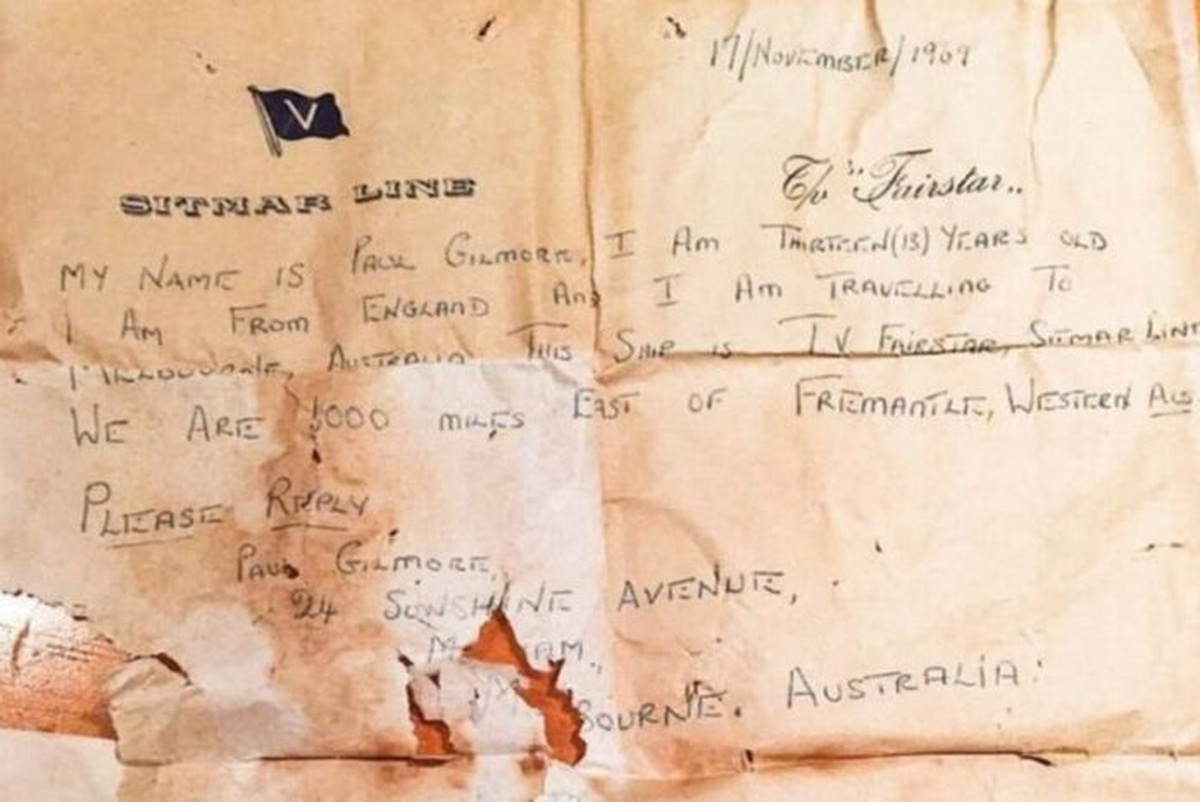 17/NOVEMBER/1969
V
SITMAR LINE
T/v "Fairstar„
MY NAME IS PAUL GILMORE, I AM THIRTEEN(13) YEARS OLD
I AM FROM ENGLAND AND I AM TRAVELLING TO
MELBOURNE, AUSTRALIA THIS SHIP IS TV FAIRSTAR, SITMAR LINE
WE ARE 1000 MILES EAST OF FREMANTLE, WESTERN AUS
PLEASE REPLY
PAUL GILMORE,
24 SUNSHINE AVENUE,
AM.,
BOURNE. AUSTRALIA: